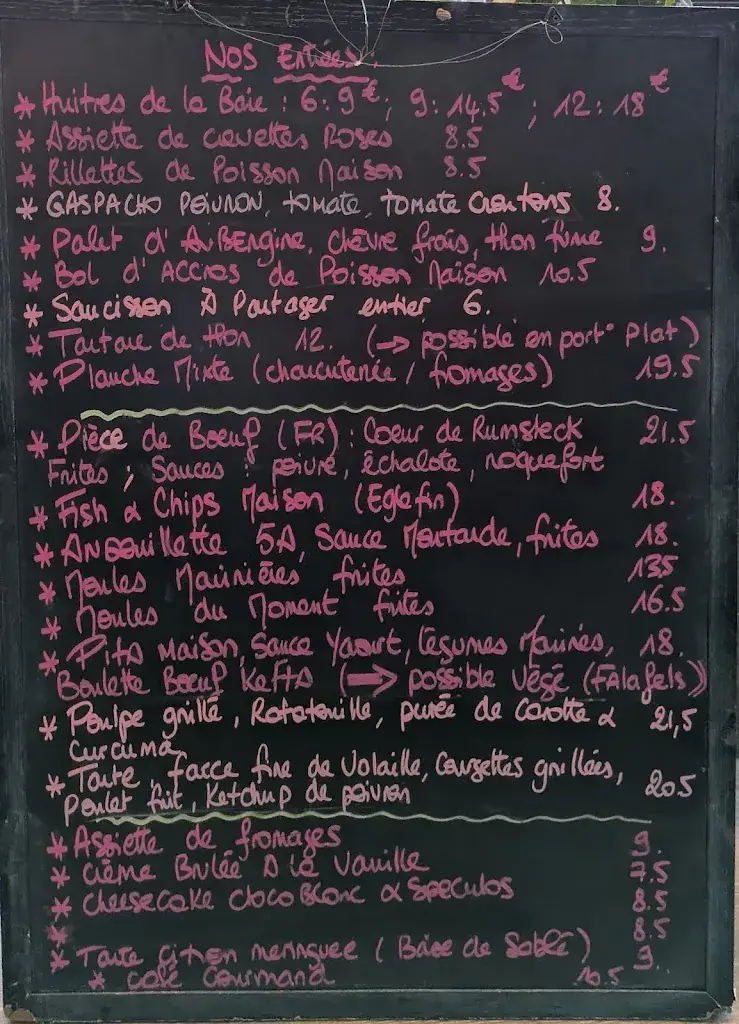 Nos Entrées :
* Huitres de la Baie : 6 : 9€ ; 9 : 14.5€ ; 12 : 18€
* Assiette de crevettes Roses 8.5
* Rillettes de Poisson Maison 8.5
* GASPACHO POIVRON, tomate, tomate Croutons 8.
* Palet d'AuBENgine, chèvre frais, thon fumé 9.
* Bol d'ACCRAS de Poisson Maison 10.5
* Saucisson À Partager entier 6.
* Tartare de thon 12. (→ possible en port° Plat)
* Planche Mixte (charcuterie / fromages) 19.5
* Pièce de Boeuf (FR) : Coeur de Rumsteck 21.5
Frites ; Sauces : poivre, échalote, roquefort
* Fish & Chips Maison (Eglefin) 18.
* ANDOUillette 5A, Sauce Moutarde, frites 18.
* Moules Marinières frites 13.5
* Moules du Moment frites 16.5
* Pita Maison, Sauce Yaourt, légumes Marinés, 18.
Boulette Boeuf Kefta (→ possible végé (Falafels))
* Poulpe grillé, Ratatouille, purée de Carotte & 21,5
Curcuma
* Tarte, farce fine de Volaille, Courgettes grillées, 20.5
Poulet frit, Ketchup de poivron
* Assiette de fromages 9.
* Crème Brulée A la Vanille 7.5
* Cheesecake Choco Blanc & Speculos 8.5
* 8.5
* Tarte Citron meringuee (Base de Sablé) 9.
* Café Gourmand 10.5